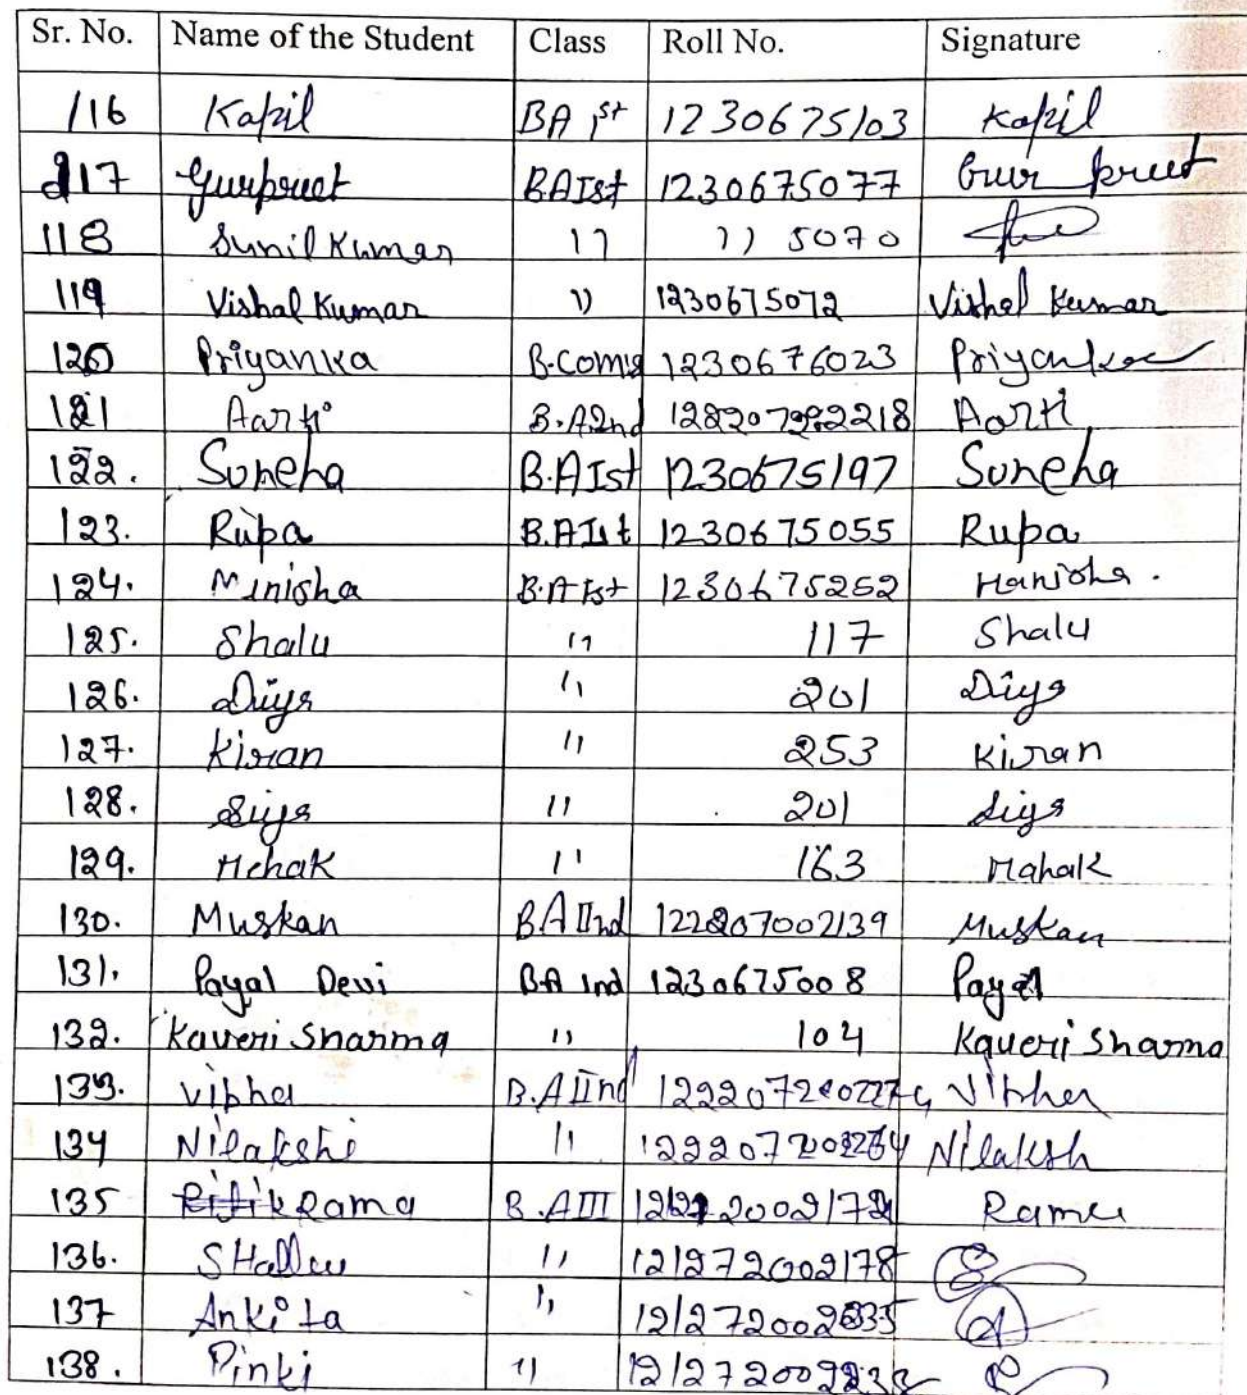 Sr. No. Name of the Student Class Roll No. Signature
116 Kapil BA Ist 1230675103 Kapil
117 Gurpreet BA Ist 1230675077 Gurpreet
118 Sunil Kumar 11 11 5070
119 Vishal Kumar 11 1230675072 Vishal Kumar
120 Priyanka B.Com 1230676023 Priyanka
121 Aarti B.A 2nd Aarti
122. Suneha B.A Ist 1230675197 Suneha
123. Rupa B.A Ist 1230675055 Rupa
124. Minisha B.A Ist 1230675252 Manisha.
125. Shalu " 117 Shalu
126. Diya " 201 Diya
127. Kiran " 253 Kiran
128. Siya " 201 Siya
129. Mehak " 163 Mahak
130. Muskan BA IInd 122207002139 Muskan
131. Payal Devi BA Ind 1230675008 Payal
132. Kaveri Sharma " 104 Kaveri Sharma
133. Vibha B.A IInd Vibha
134 Nilakshi " Nilaksh
135 Rama B.A III Rama
136. SHallu " 121272002178
137 Ankita "
138. Pinki "